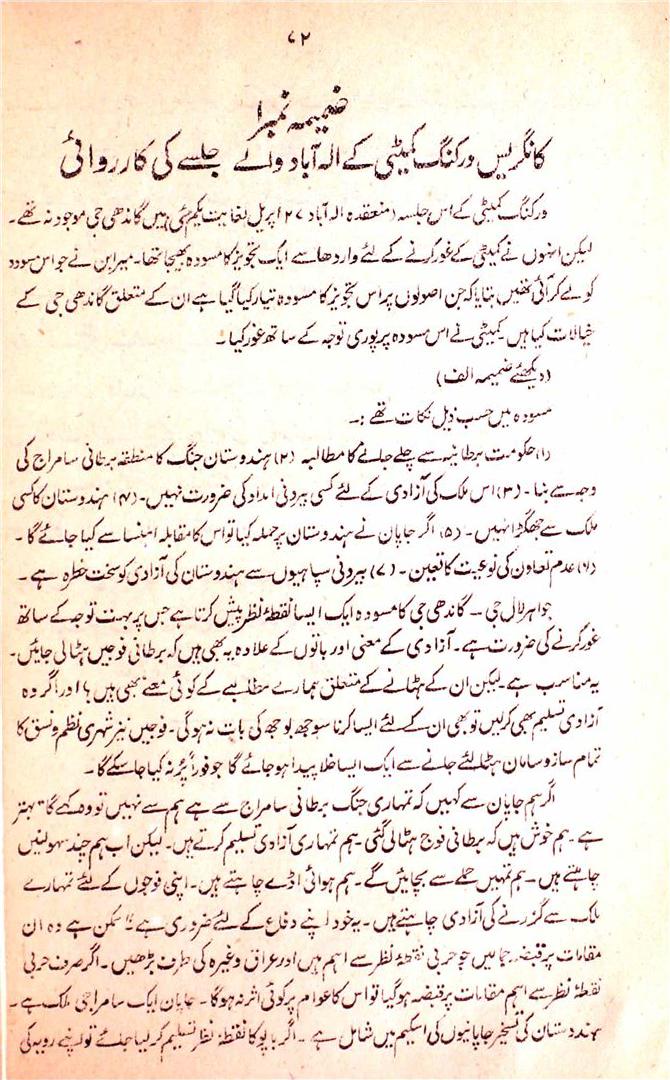 ۷۲
ضمیمہ نمبر ۱
کانگریس ورکنگ کمیٹی کے الہ آباد والے جلسے کی کارروائی
ورکنگ کمیٹی کے اس جلسہ (منعقدہ الہ آباد ۲۷ اپریل لغایت یکم مئی) میں گاندھی جی موجود نہ تھے۔
لیکن انہوں نے کمیٹی کے غور کرنے کے لئے واردھا سے ایک تجویز کا مسودہ بھیجا تھا۔ میرا بن نے جو اس مسودہ
کو لے کر آئی تھیں بتایا کہ جن اصولوں پر اس تجویز کا مسودہ تیار کیا گیا ہے ان کے متعلق گاندھی جی کے
خیالات کیا ہیں۔ کمیٹی نے اس مسودہ پر پوری توجہ کے ساتھ غور کیا۔
(دیکھئے ضمیمہ الف)
مسودہ میں حسب ذیل نکات تھے :۔
(۱) حکومت برطانیہ سے چلے جانے کا مطالبہ (۲) ہندوستان جنگ کا منطقہ برطانی سامراج کی
وجہ سے بنا۔ (۳) اس ملک کی آزادی کے لئے کسی بیرونی امداد کی ضرورت نہیں۔ (۴) ہندوستان کا کسی
ملک سے جھگڑا نہیں۔ (۵) اگر جاپان نے ہندوستان پر حملہ کیا تو اس کا مقابلہ اہنسا سے کیا جائے گا۔
(۶) عدم تعاون کی نوعیت کا تعین۔ (۷) بیرونی سپاہیوں سے ہندوستان کی آزادی کو سخت خطرہ ہے۔
جواہر لال جی۔ گاندھی جی کا مسودہ ایک ایسا نقطۂ نظر پیش کرتا ہے جس پر بہت توجہ کے ساتھ
غور کرنے کی ضرورت ہے۔ آزادی کے معنی اور باتوں کے علاوہ یہ بھی ہیں کہ برطانی فوجیں ہٹا لی جائیں۔
یہ مناسب ہے۔ لیکن ان کے ہٹانے کے متعلق ہمارے مطالبے کے کوئی معنے بھی ہیں؟ اور اگر وہ
آزادی تسلیم بھی کر لیں تو بھی ان کے لئے ایسا کرنا سوجھ بوجھ کی بات نہ ہو گی۔ فوجیں نیز شہری نظم و نسق کا
تمام ساز و سامان ہٹا لئے جانے سے ایک ایسا خلا پیدا ہو جائے گا جو فوراً پُر نہ کیا جا سکے گا۔
اگر ہم جاپان سے کہیں کہ تمہاری جنگ برطانی سامراج سے ہے ہم سے نہیں تو وہ کہے گا "بہتر
ہے۔ ہم خوش ہیں کہ برطانی فوج ہٹا لی گئی۔ ہم تمہاری آزادی تسلیم کرتے ہیں۔ لیکن اب ہم چند سہولتیں
چاہتے ہیں۔ ہم تمہیں حملے سے بچائیں گے۔ ہم ہوائی اڈے چاہتے ہیں۔ اپنی فوجوں کے لئے تمہارے
ملک سے گزرنے کی آزادی چاہتے ہیں۔ یہ خود اپنے دفاع کے لئے ضروری ہے"۔ ممکن ہے وہ ان
مقامات پر قبضہ جما لیں جو حربی نقطۂ نظر سے اہم ہیں اور عراق وغیرہ کی طرف بڑھیں۔ اگر صرف حربی
نقطۂ نظر سے اہم مقامات پر قبضہ ہو گیا تو اس کا عوام پر کوئی اثر نہ ہو گا۔ جاپان ایک سامراجی ملک ہے۔
ہندوستان کی تسخیر جاپانیوں کی اسکیم میں شامل ہے۔ اگر باپو کا نقطۂ نظر تسلیم کر لیا جائے تو اپنے رویہ کی